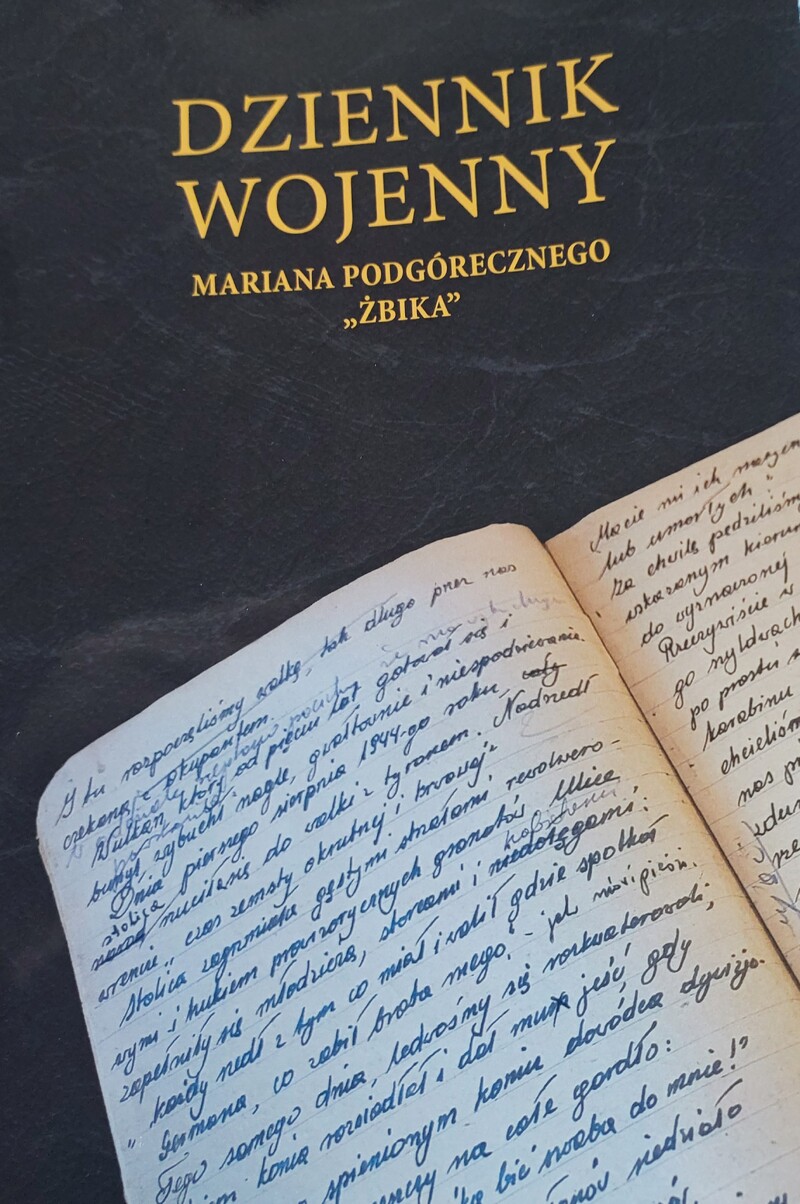 DZIENNIK
WOJENNY
MARIANA PODGÓRECZNEGO
„ŻBIKA”
I tu rozpoczęliśmy walkę, tak długo przez nas
czekaną z okupantem.
Wulkan, który od pięciu lat gotował się i
burzył wybuchł nagle, gwałtownie i niespodziewanie.
Dnia pierwszego sierpnia 1944-go roku, cały
stolica rzuciła się do walki z tyranem. Nadszedł
wreszcie „czas zemsty okrutnej i krwawej”
Stolica zagrzmiała gęstymi strzałami rewolwero-
wymi i hukiem prowizorycznych granatów. Ulice
zapełniły się młodzieżą, starcami i niedołęgami:
„każdy szedł z tym co miał i walił gdzie spotkał
Germana, co zabił brata mego,” - jak mówi pieśń.
Tego samego dnia, ledwośmy się rozkwaterowali,
konia rozsiodłał i dał mu jeść, gdy
spienionym koniu dowódca dywizjo.
na całe gardło:
bić szwaba do mnie!”
siedziało
Macie mi ich
lub umarłych”
Za chwilę pędziliśmy
wskazanym
do wyznaczonej
Rzeczywiście w
go
po prostu
karabinu
chcieliśm
nas